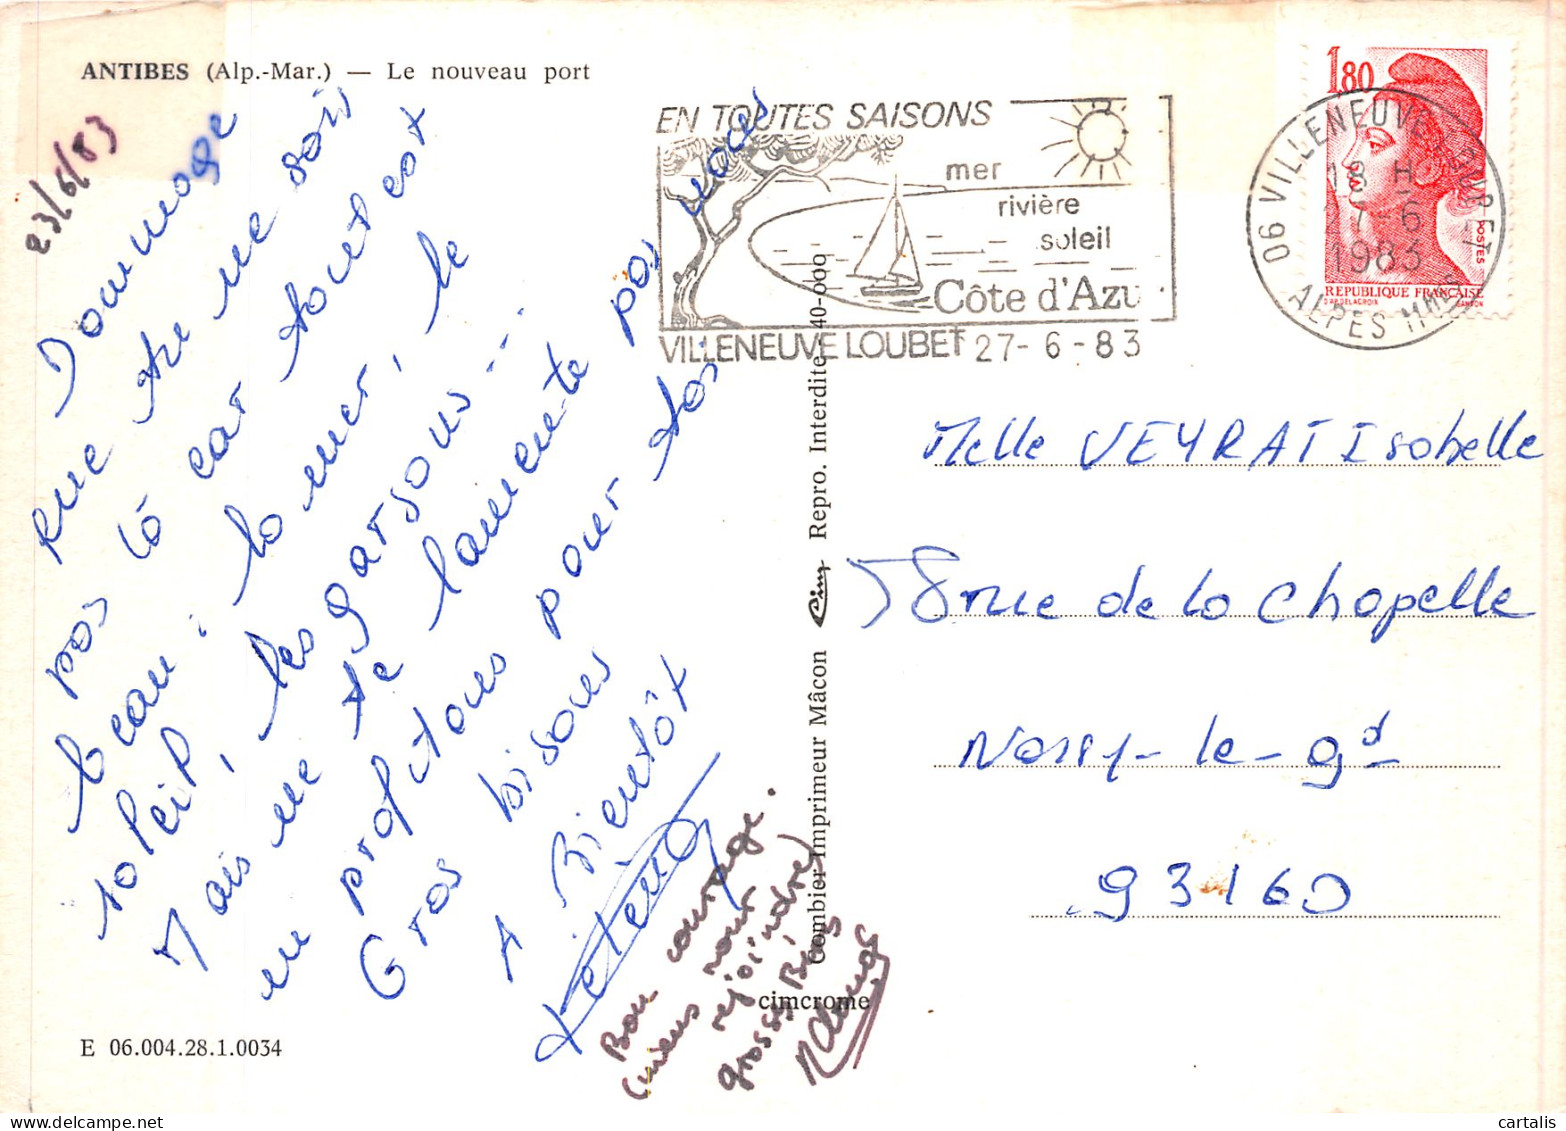 ANTIBES (Alp.-Mar.) — Le nouveau port
23/6/83
Dommage
que tu ne sois
pas là car tout est
beau : la mer, le
soleil, les garsons...
Mais ne te lamente pas nous
en profitons pour toi
Gros bisous
A Bientôt
Bon courage.
(viens nour
rejoindre)
grosses Bises
E 06.004.28.1.0034
Combier Imprimeur Mâcon Cim Repro. Interdite 40-000
cimcrome
EN TOUTES SAISONS
mer
rivière
soleil
Côte d'Azu
VILLENEUVE LOUBET 27-6-83
1,80
POSTES
REPUBLIQUE FRANÇAISE
D'AP. DELACROIX GANDON
06 VILLENEUVE LOUBET
18 H
27-6
1983
ALPES MMES
Melle VEYRAT Isabelle
58 rue de la Chapelle
Noisy-le-gd
93160
cartalis